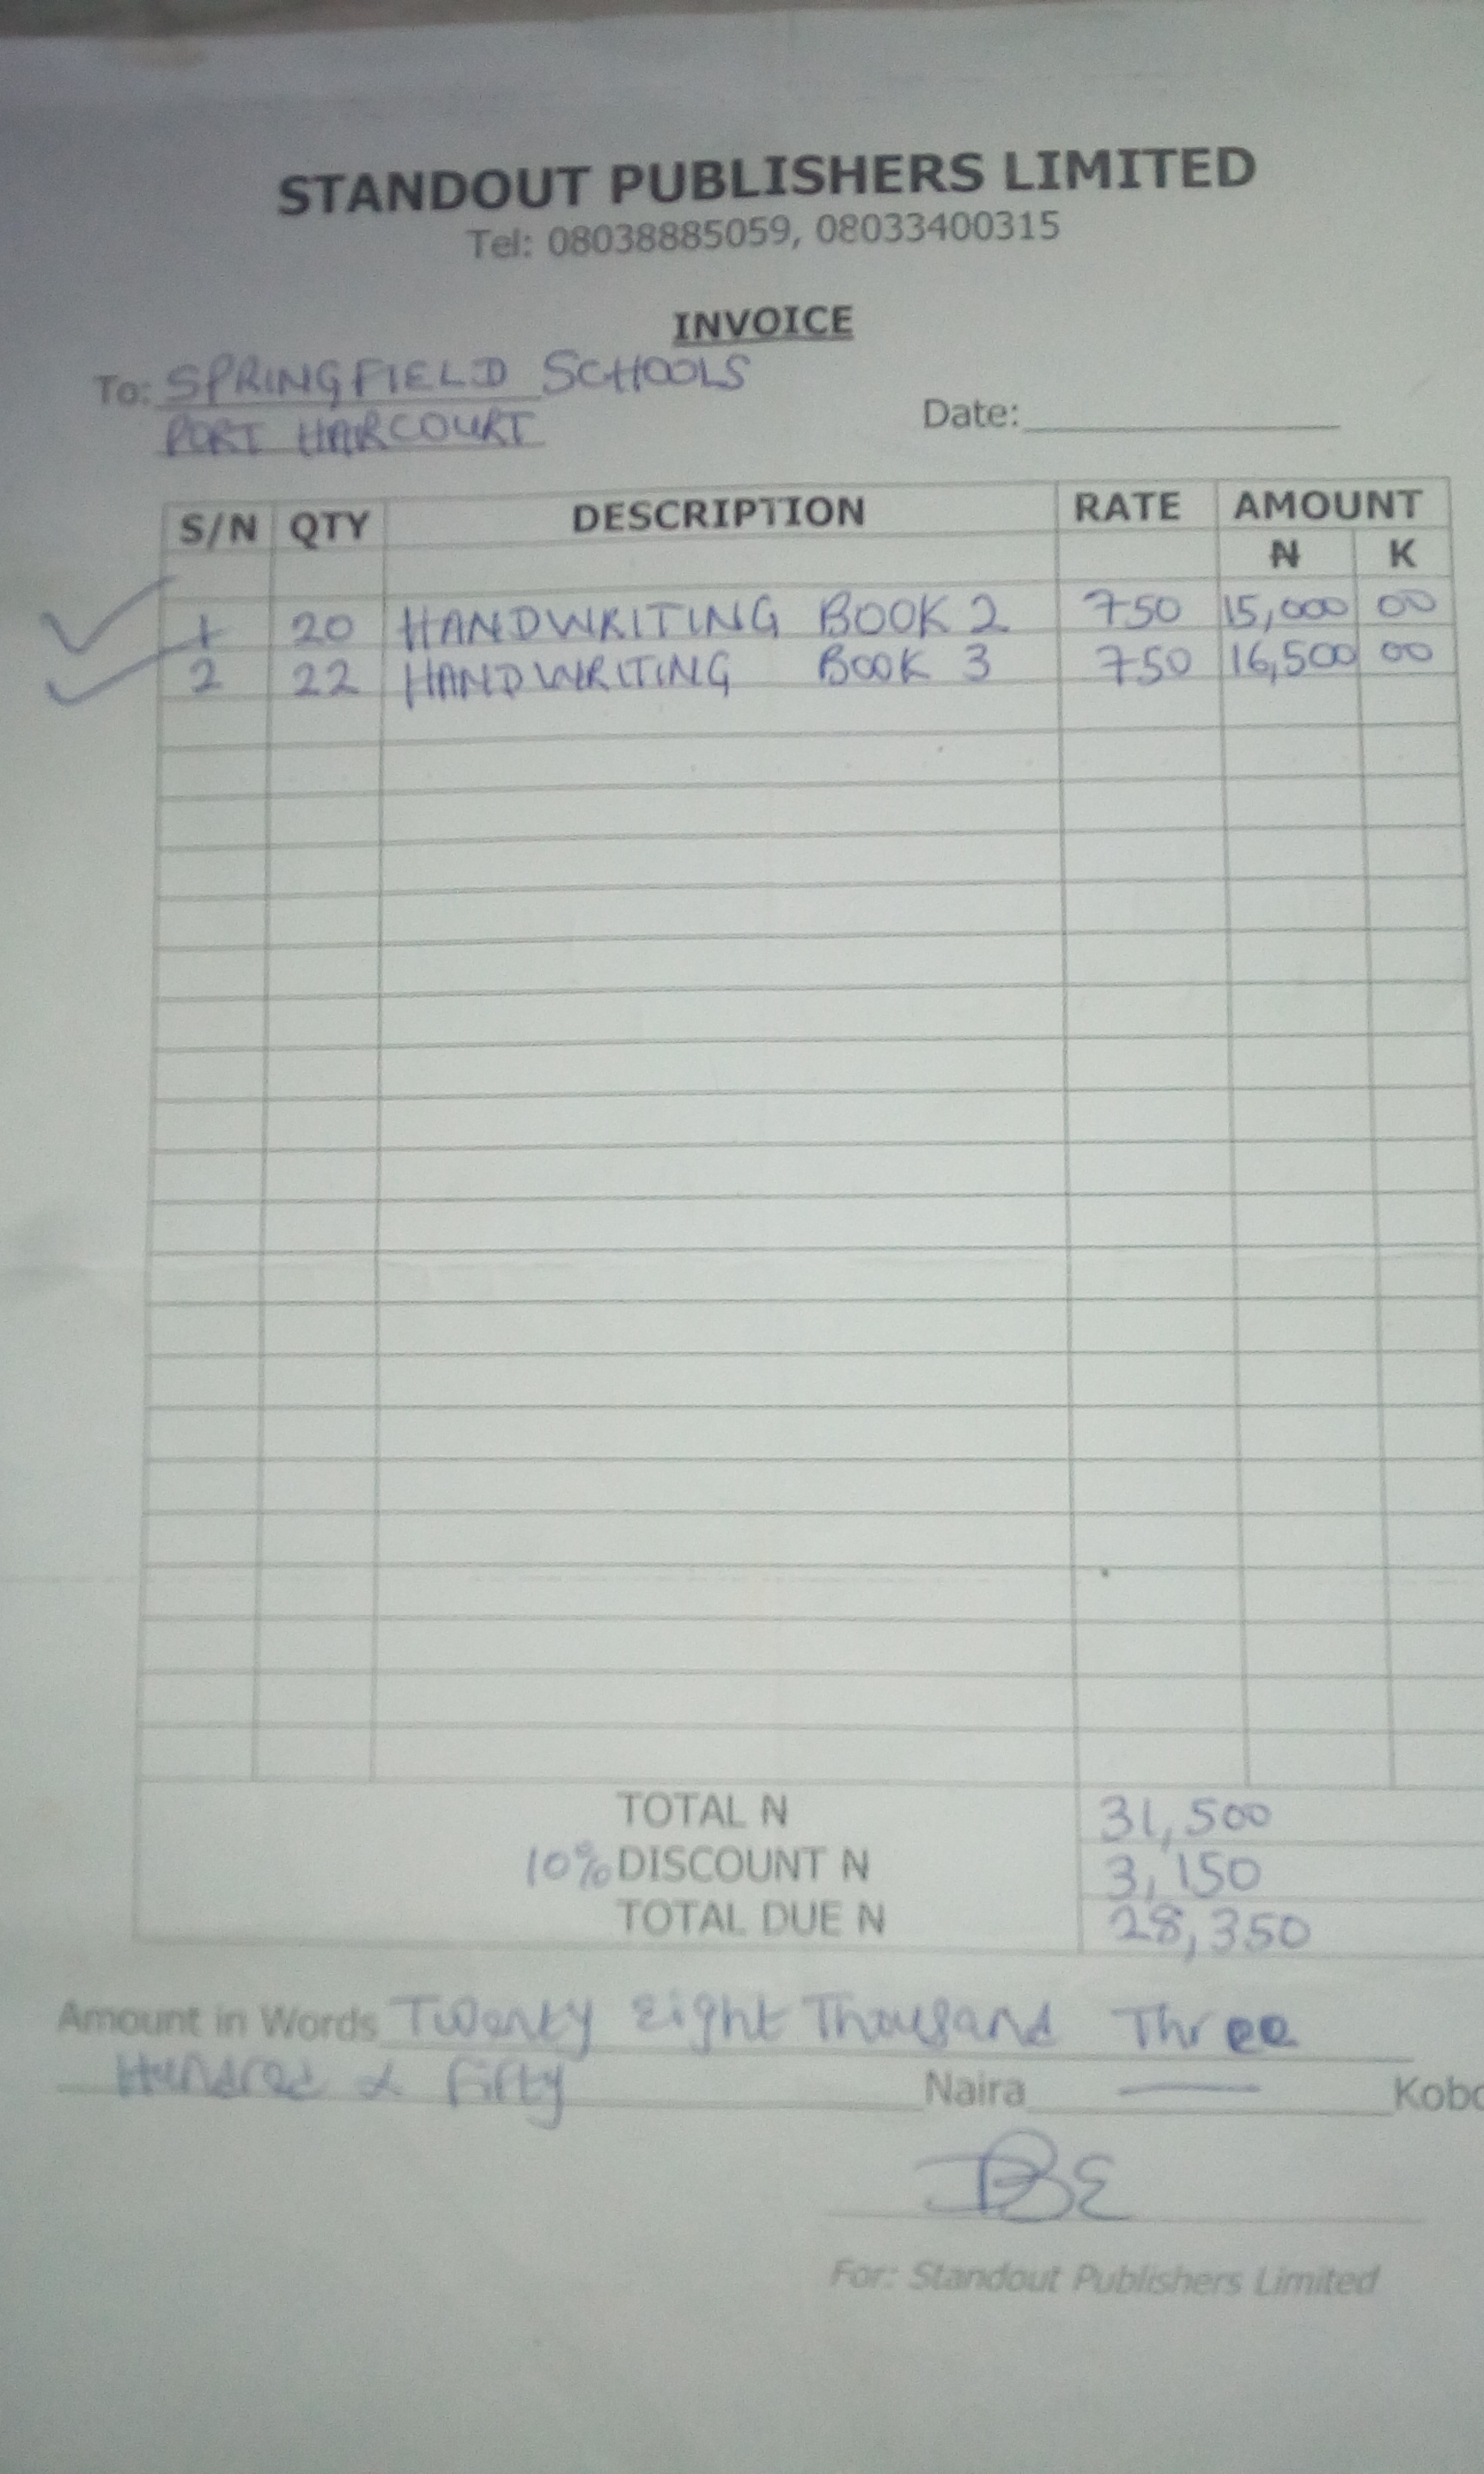 STANDOUT PUBLISHERS LIMITED
Tel: 08038885059, 08033400315
INVOICE
To: SPRINGFIELD SCHOOLS
PORT HARCOURT
Date:
S/N QTY DESCRIPTION RATE AMOUNT
₦ K
1 20 HANDWRITING BOOK 2 750 15,000 00
2 22 HANDWRITING BOOK 3 750 16,500 00
TOTAL N 31,500
10% DISCOUNT N 3,150
TOTAL DUE N 28,350
Amount in Words Twenty Eight Thousand Three
Hundred & Fifty Naira — Kobo
For: Standout Publishers Limited